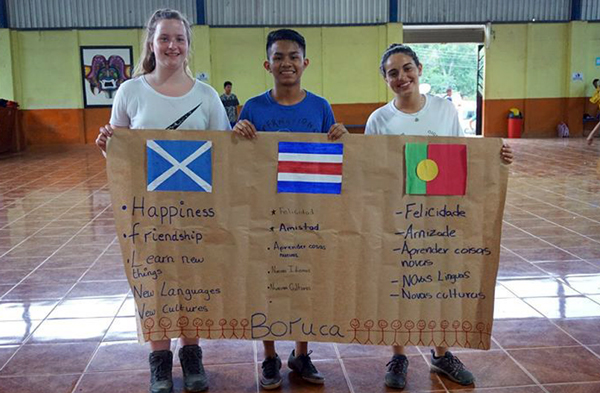 • Happiness
• friendship
• Learn new
things
New Languages
New Cultures
* Felicidad
* Amistad
* Aprender cosas
nuevas
* Nuevos Idiomas
* Nuevas Culturas
- Felicidade
- Amizade
- Aprender coisas
novas
- Novas Linguas
- Novas culturas
Boruca